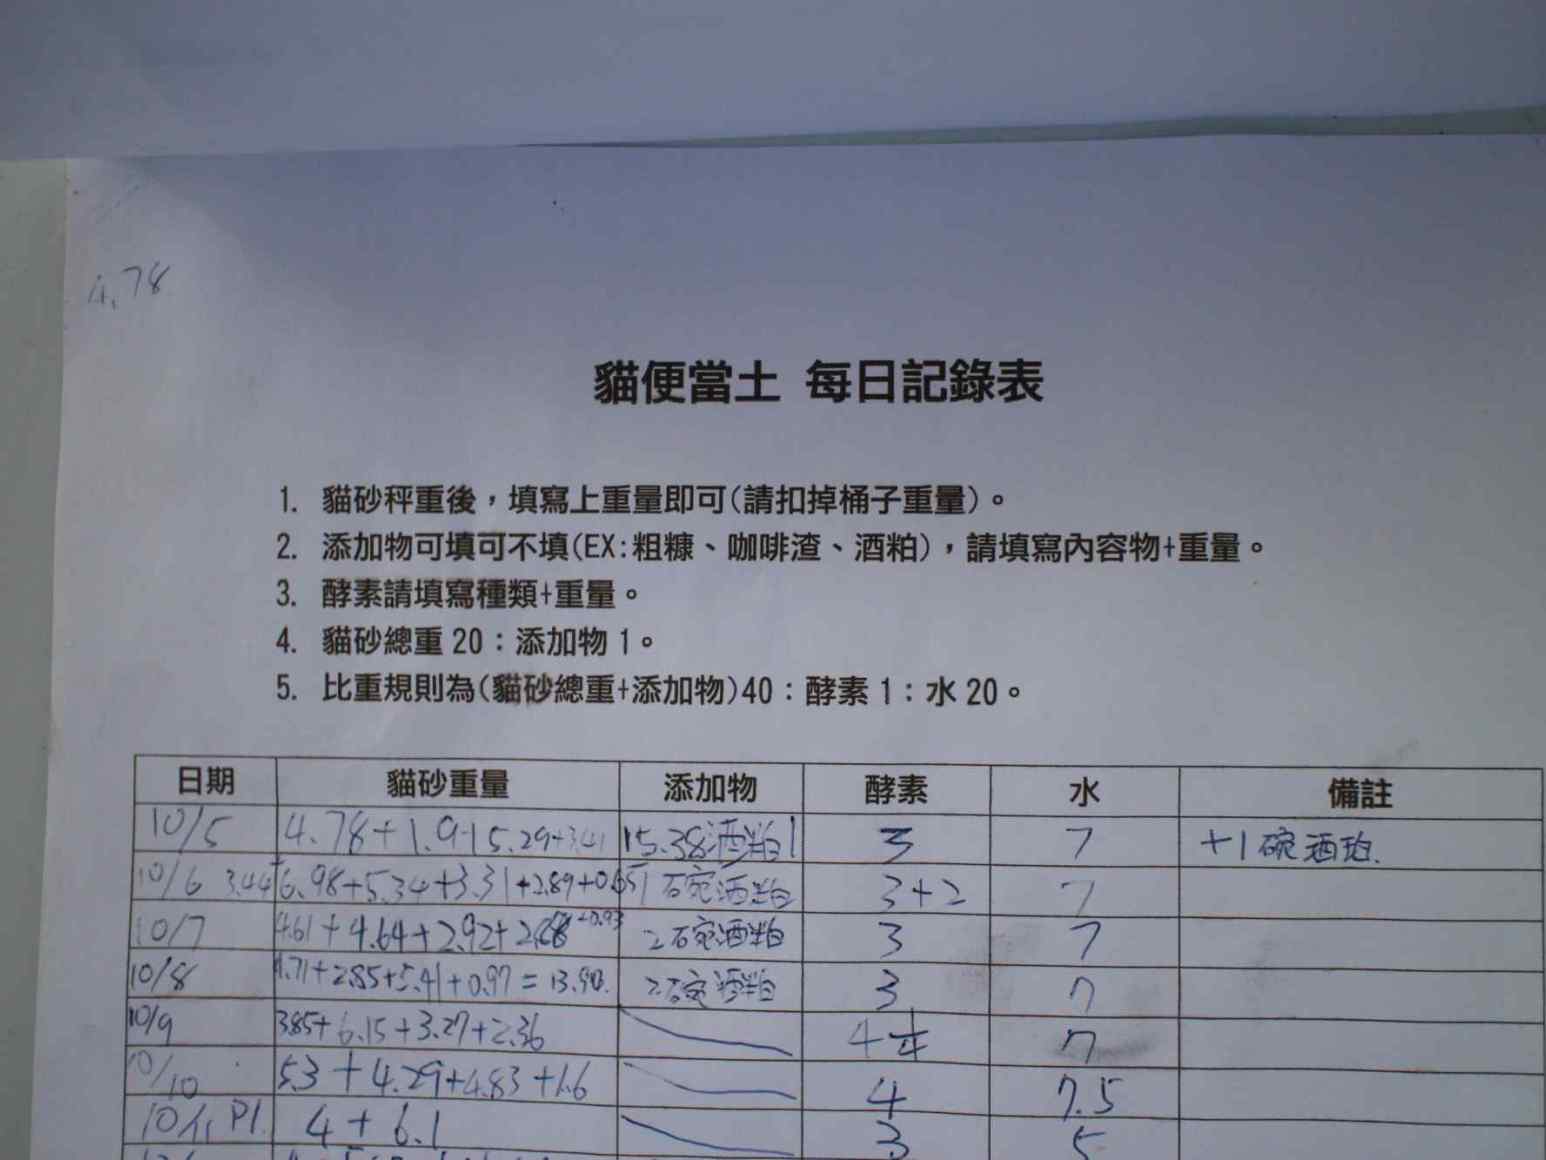 4.78
貓便當土 每日記錄表
1. 貓砂秤重後，填寫上重量即可(請扣掉桶子重量)。
2. 添加物可填可不填(EX:粗糠、咖啡渣、酒粕)，請填寫內容物+重量。
3. 酵素請填寫種類+重量。
4. 貓砂總重 20：添加物 1。
5. 比重規則為(貓砂總重+添加物)40：酵素 1：水 20。
日期 貓砂重量 添加物 酵素 水 備註
10/5 4.78+1.9 15.29+3.41 15.38酒粕1 3 7 +1碗酒粕.
10/6 3.44+6.98+5.34+3.31+2.89+0.65 1碗酒粕 3+2 7
10/7 4.61+4.64+2.92+2.68+0.93 2碗酒粕 3 7
10/8 4.71+2.85+5.41+0.97= 2碗酒粕 3 7
10/9 3.85+6.15+3.27+2.36 4 7
10/10 5.3+4.29+4.83+1.6 4 7.5
10/11 P1. 4+6.1 3 5